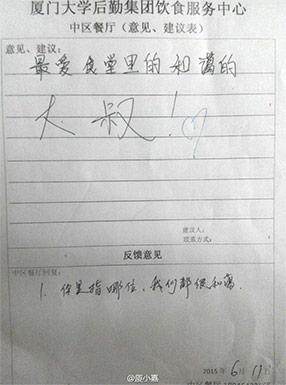 厦门大学后勤集团饮食服务中心
中区餐厅（意见、建议表）
意见、建议：
最爱食堂里的和蔼的
大叔！
建议人：
联系方式：
反馈意见
中区餐厅回复：
1. 你是指哪位，我们都很和蔼.
2015年6月11日
@阪小嘉